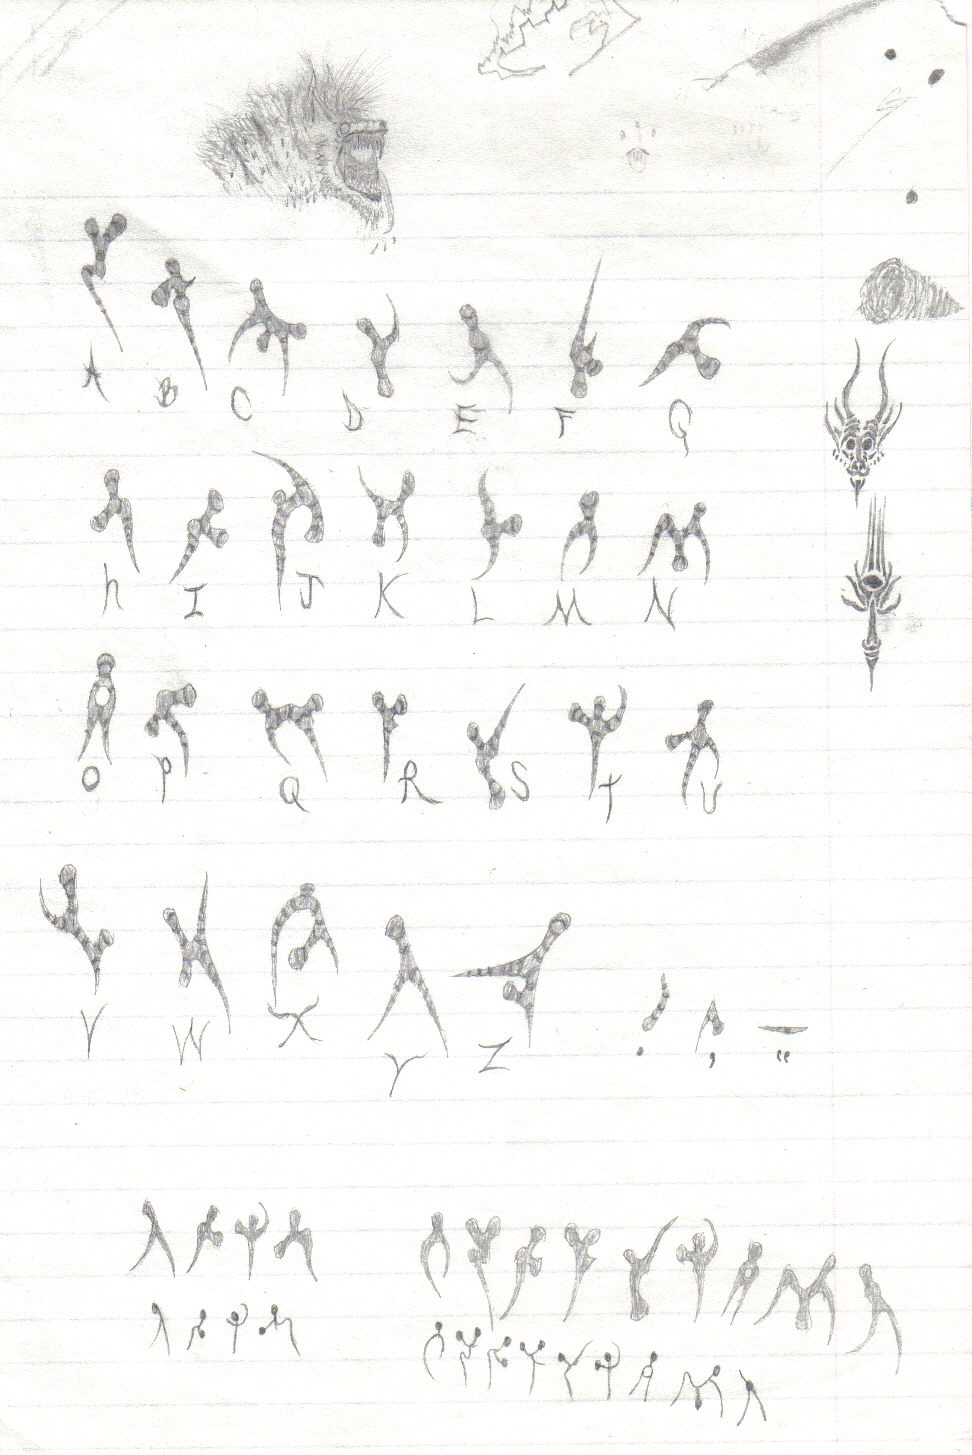 A B C D E F G
h I J K L M N
O P Q R S T U
V W X Y Z . , "